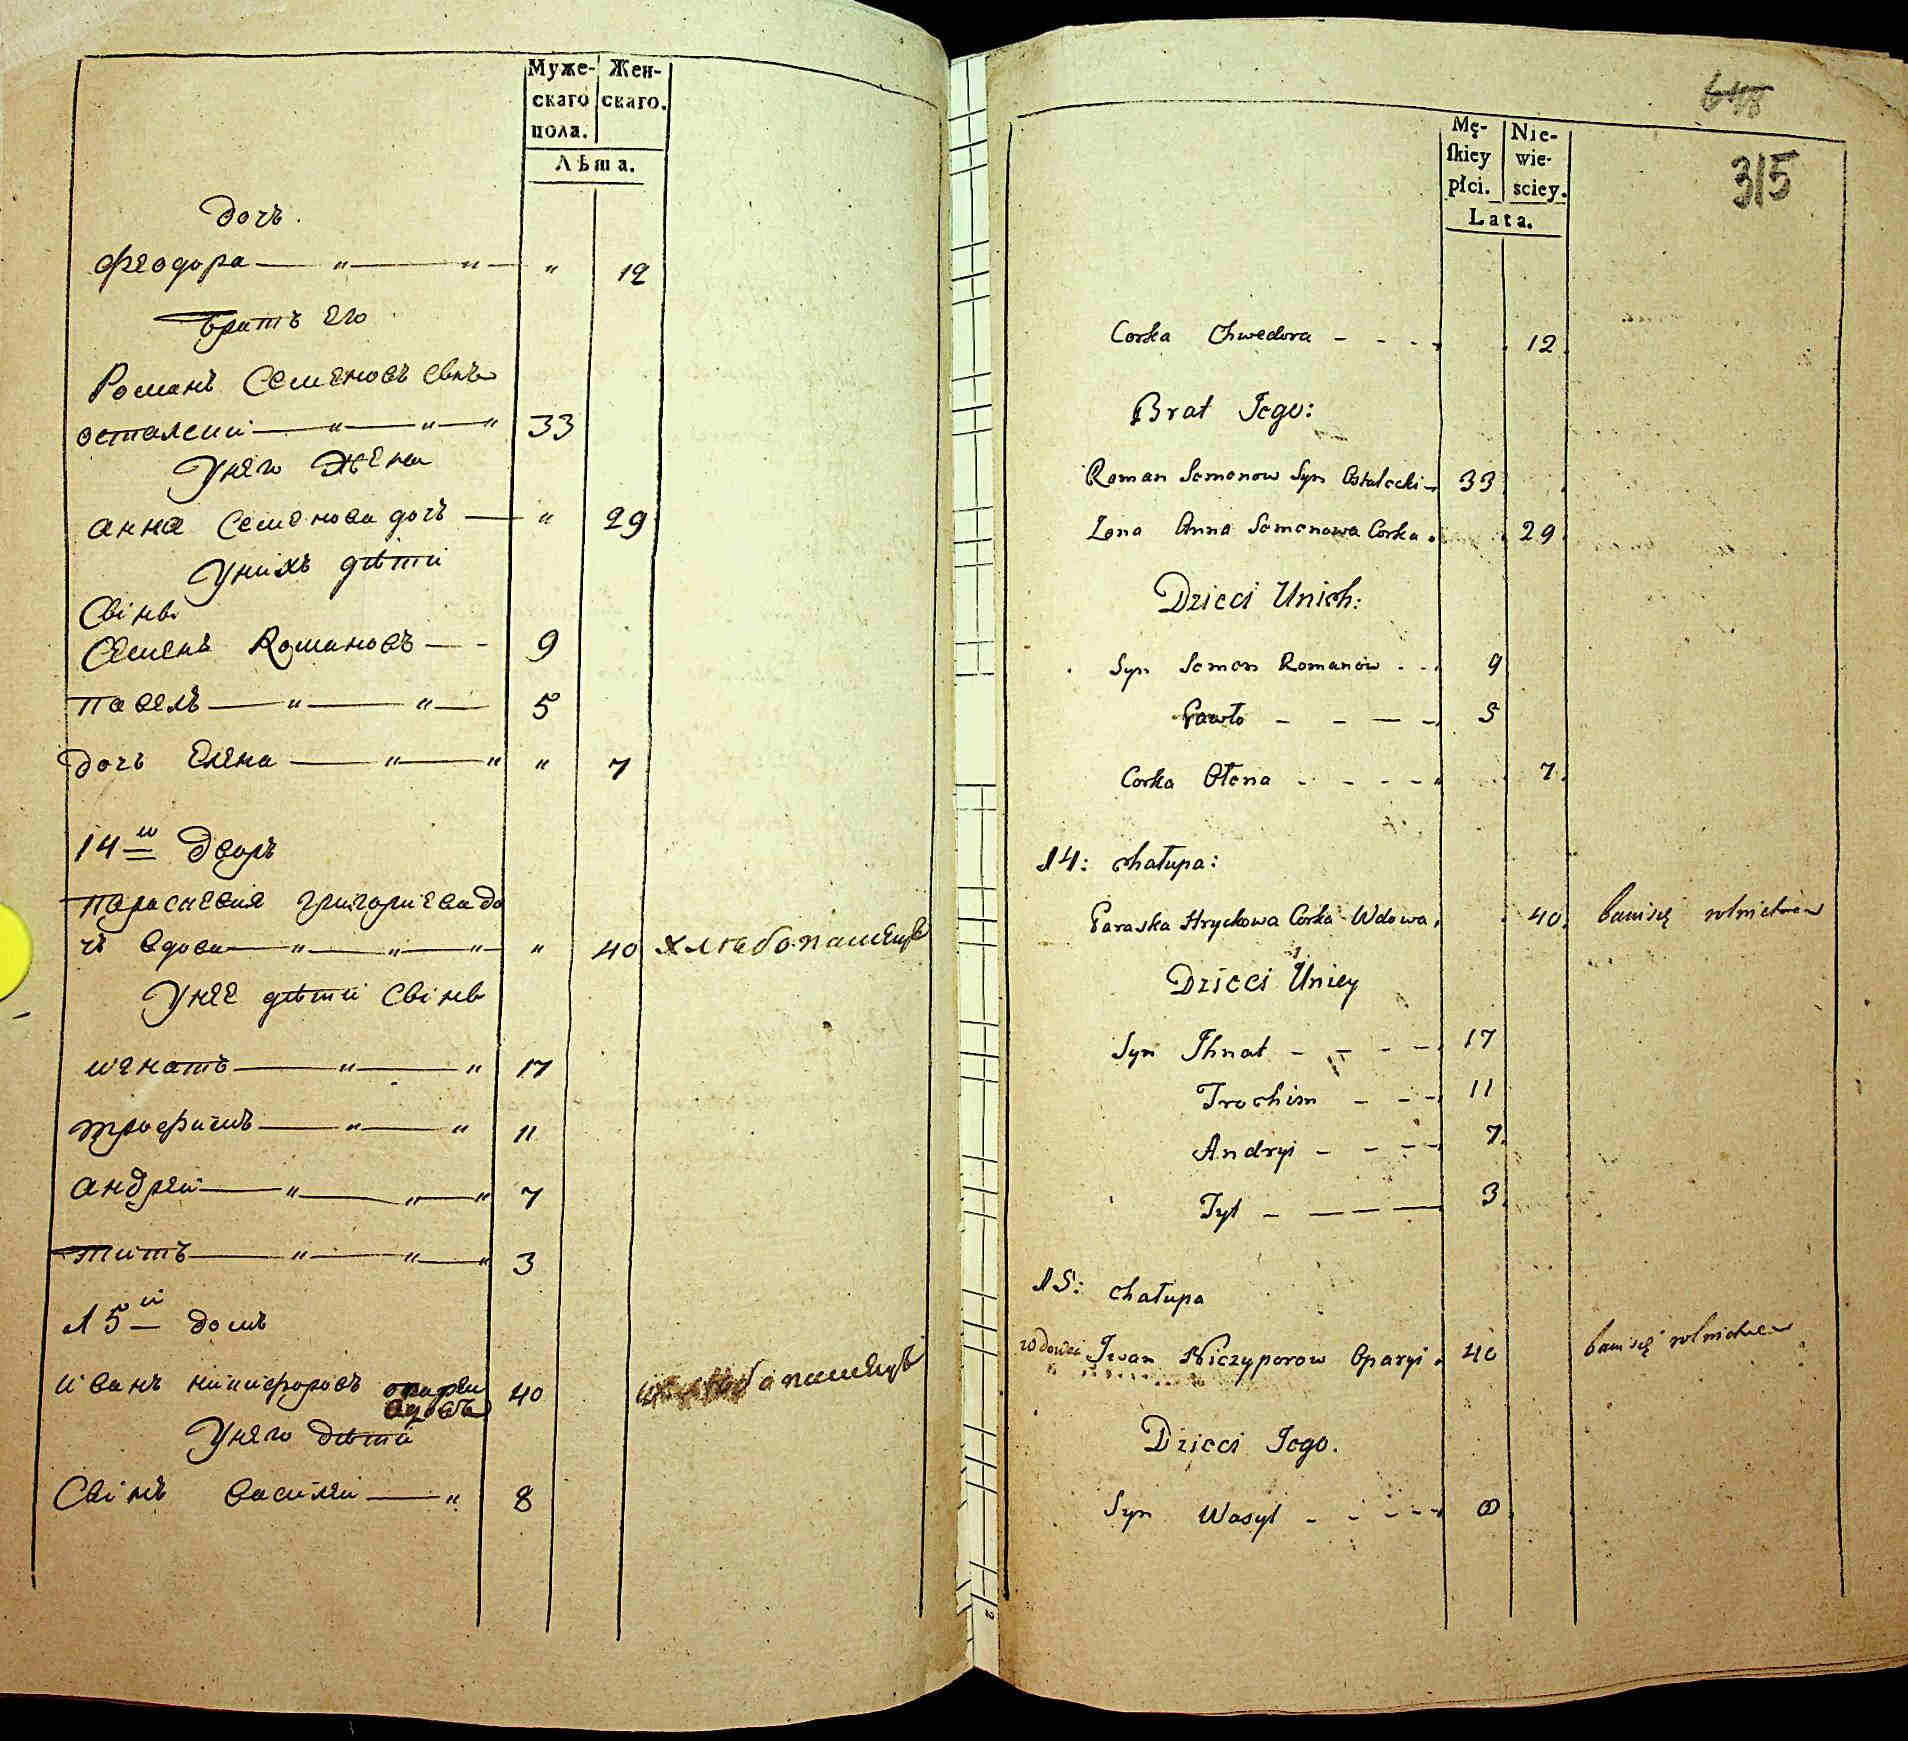 Муже-
скаго
пола.
Жен-
скаго.
Лѣта.
дочь
Феодора — " — " — " 12
братъ его
Романъ Семеновъ свнъ
осталский — " — " — " 33
У него жена
Анна Семенова дочь — " 29
У нихъ дѣти
Свінв
Семенъ Романовъ — - 9
Павелъ — " — " — 5
дочь Елена — " — " " 7
14й дворъ
Параскевия Григориева до
чь вдова — " — " — " " 40 хлѣбопашецъ
У нее дѣти Свінв
Игнатъ — " — " 17
Трофимъ — " — " 11
Андрей — " — " — " 7
Титъ — " — " — " 3
15й домъ
Иванъ Никифоровъ опарѣи 40
вдовъ
У него дѣти
Свінъ Василеи — " 8
648
315
Mę-
skiey
płci.
Nie-
wie-
sciey.
Lata.
Corka Chwedora - - - - 12
Brat Jego:
Roman Semenow Syn Ostalecki - 33
Zona Anna Semenowa Corka . 29
Dzieci Unich:
Syn Semen Romanow - - - 9
Pawło - - — - 5
Corka Ołena - - - - 7
14: chałupa:
Paraska Hryckowa Corka Wdowa, 40 bawi się rolnictwem
Dzieci Uniey
Syn Ihnat - - - - 17
Trochim - - - 11
Andryi - - - - 7
Tyt - — — — 3
15: chałupa
wdowiec Iwan Niczyporow Oparyi . 40 bawi się rolnictwem
Dzieci Jego.
Syn Wasyl - - - - 8